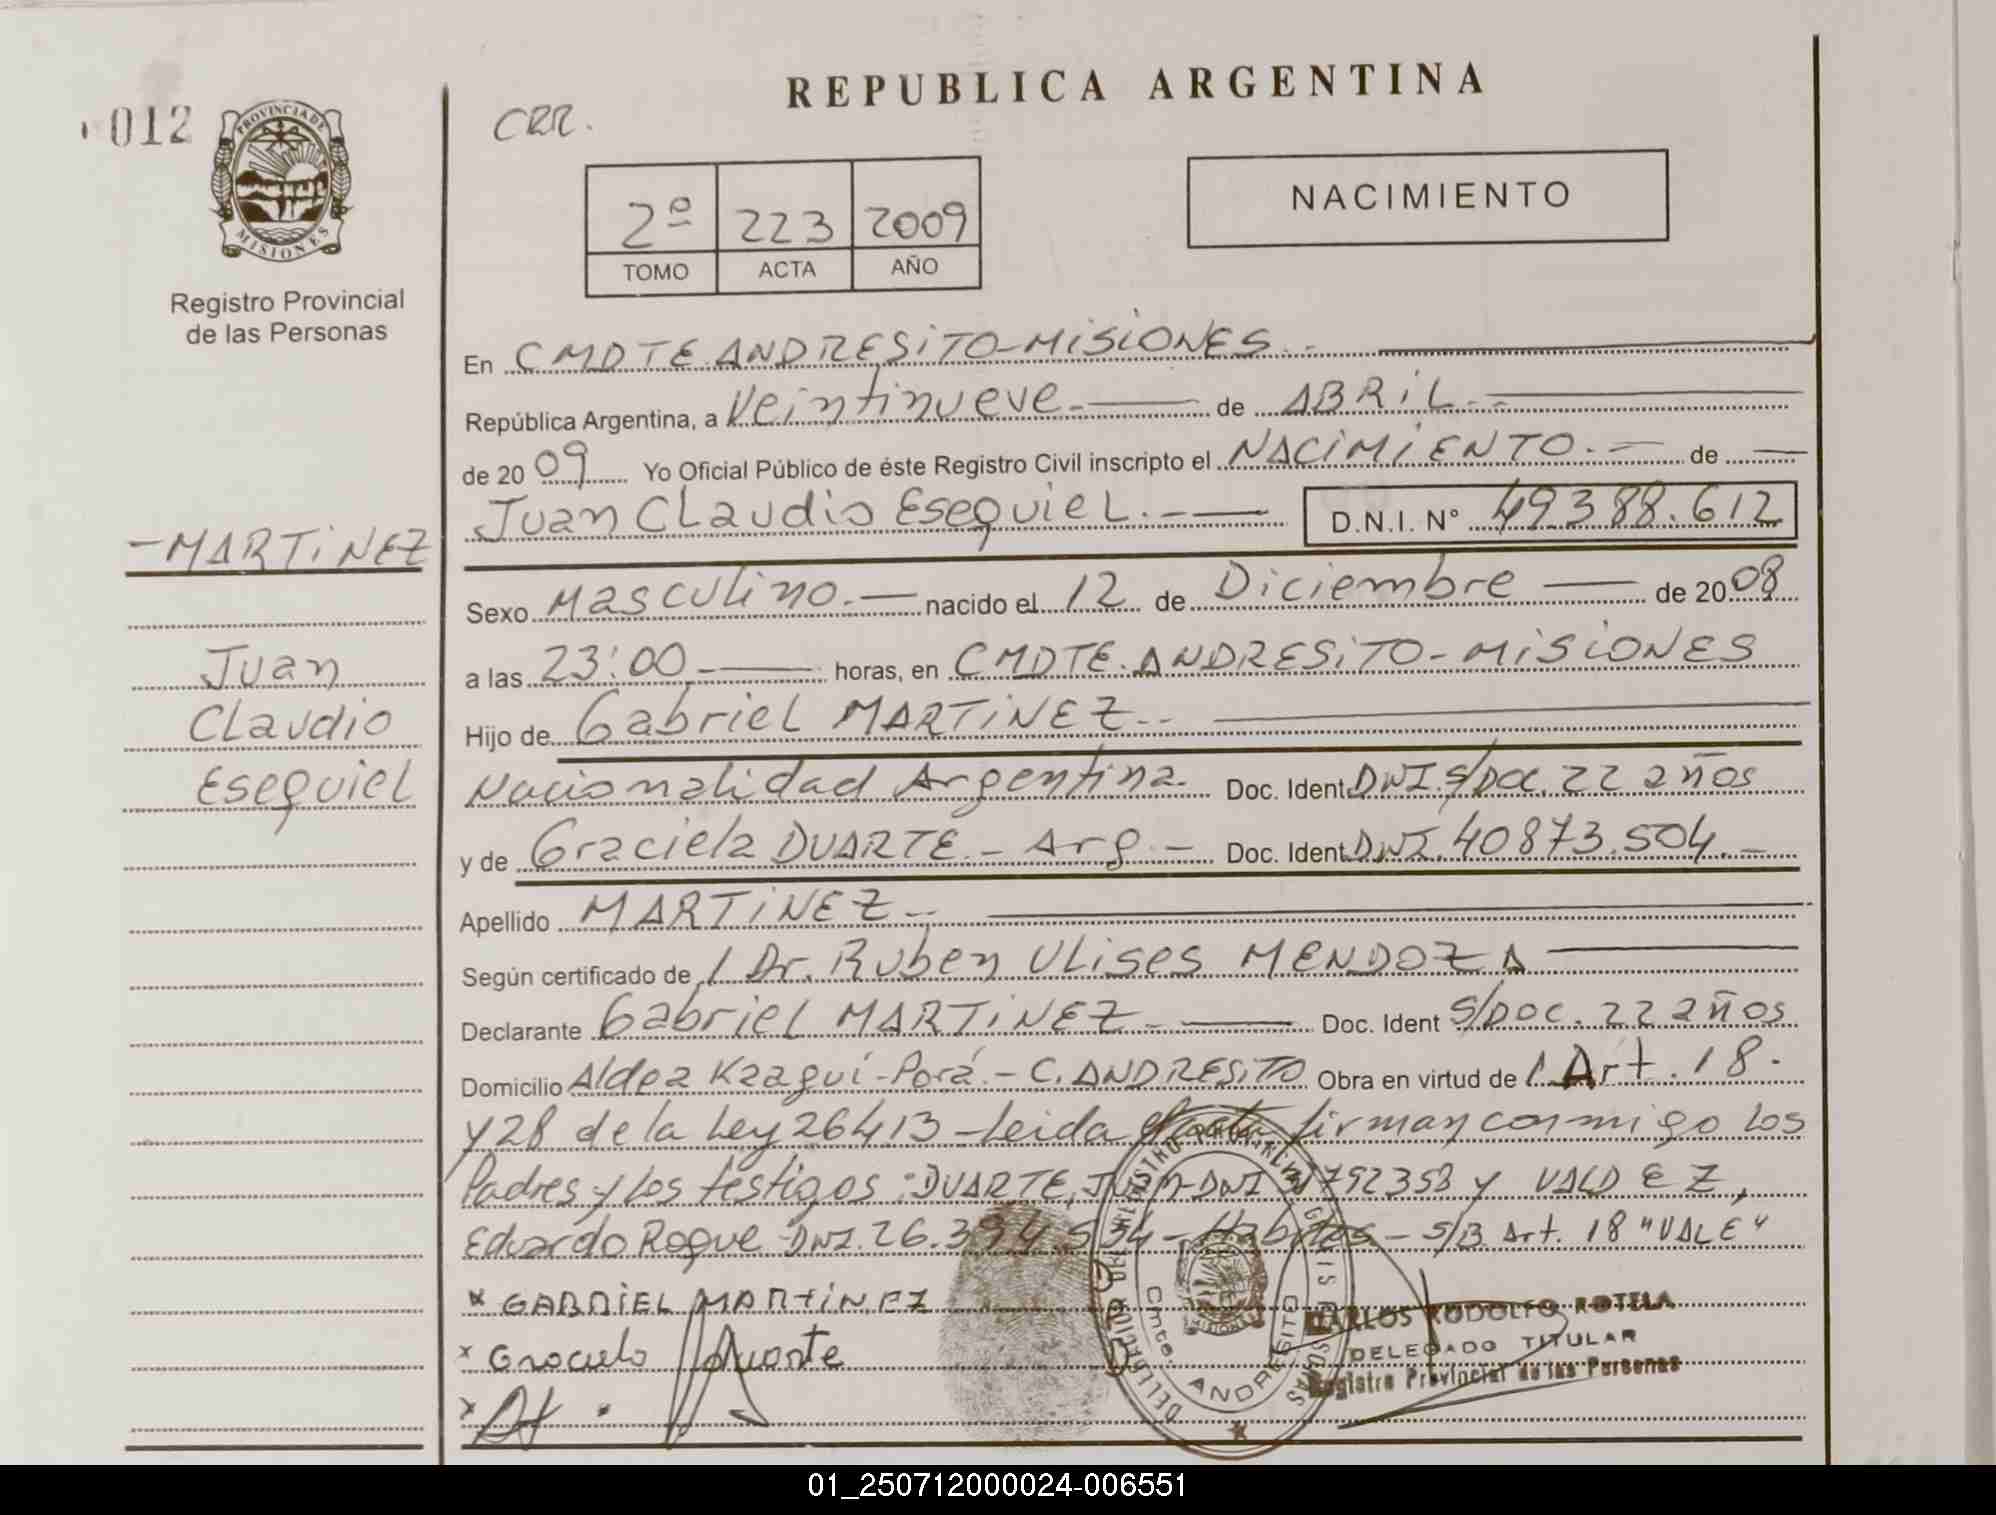 012
PROVINCIA DE
MISIONES
Registro Provincial
de las Personas
CRR.
REPUBLICA ARGENTINA
2º 223 2009
TOMO ACTA AÑO
NACIMIENTO
En CMDTE. ANDRESiTO-MiSiONES.-
República Argentina, a Veintinueve.- de ABRiL.-
de 2009 Yo Oficial Público de éste Registro Civil inscripto el NACiMiENTO.- de
Juan Claudio Esequiel.- D.N.I. Nº 49.388.612
-MARTiNEZ
Juan
Claudio
Esequiel
Sexo Masculino.- nacido el 12 de Diciembre de 2008
a las 23:00 horas, en CMDTE. ANDRESiTO-MiSiONES
Hijo de Gabriel MARTiNEZ.-
Nacionalidad Argentina. Doc. Ident DNI. S/DOC. 22 años
y de Graciela DUARTE.- Arg.- Doc. Ident DNI. 40873.504.-
Apellido MARTiNEZ.-
Según certificado de / Dr. Ruben Ulises MENDOZA
Declarante Gabriel MARTiNEZ.- Doc. Ident S/DOC. 22 años
Domicilio Aldea Kaagui-Porá.- C. ANDRESiTO Obra en virtud de / Art. 18.
y 28 de la Ley 26413-Leida el acta, firman conmigo los
Padres y los testigos: DUARTE, Juan-DNI 792353 y VALDEZ,
Eduardo Roque-DNI. 26.394.534- - S/B Art. 18 "VALE"
x GABRiEL MARTiNEZ
x Graciela Duarte
x
ANDRESITO
MISIONES
CARLOS RODOLFO ROTELA
DELEGADO TITULAR
Registro Provincial de las Personas
01_250712000024-006551